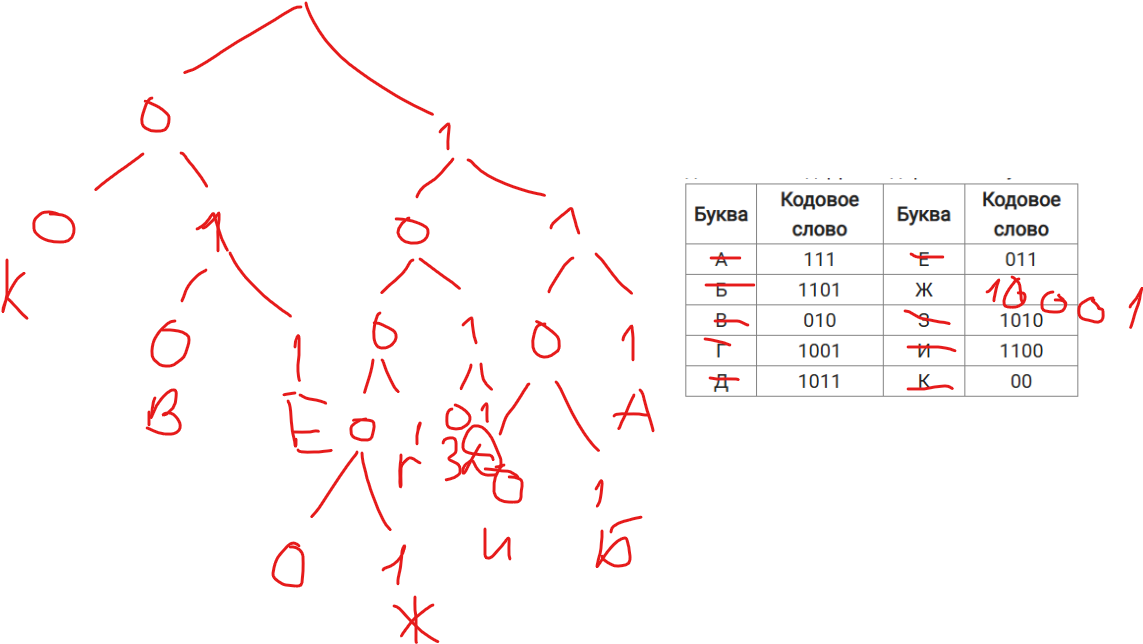 0
1
0 1 0 1
К
0 1 0 1 0 1
В Е 0 1 0 1 А
Г З Д 0 1
И Б
0 1
Ж
Буква Кодовое слово Буква Кодовое слово
А 111 Е 011
Б 1101 Ж 10001
В 010 З 1010
Г 1001 И 1100
Д 1011 К 00